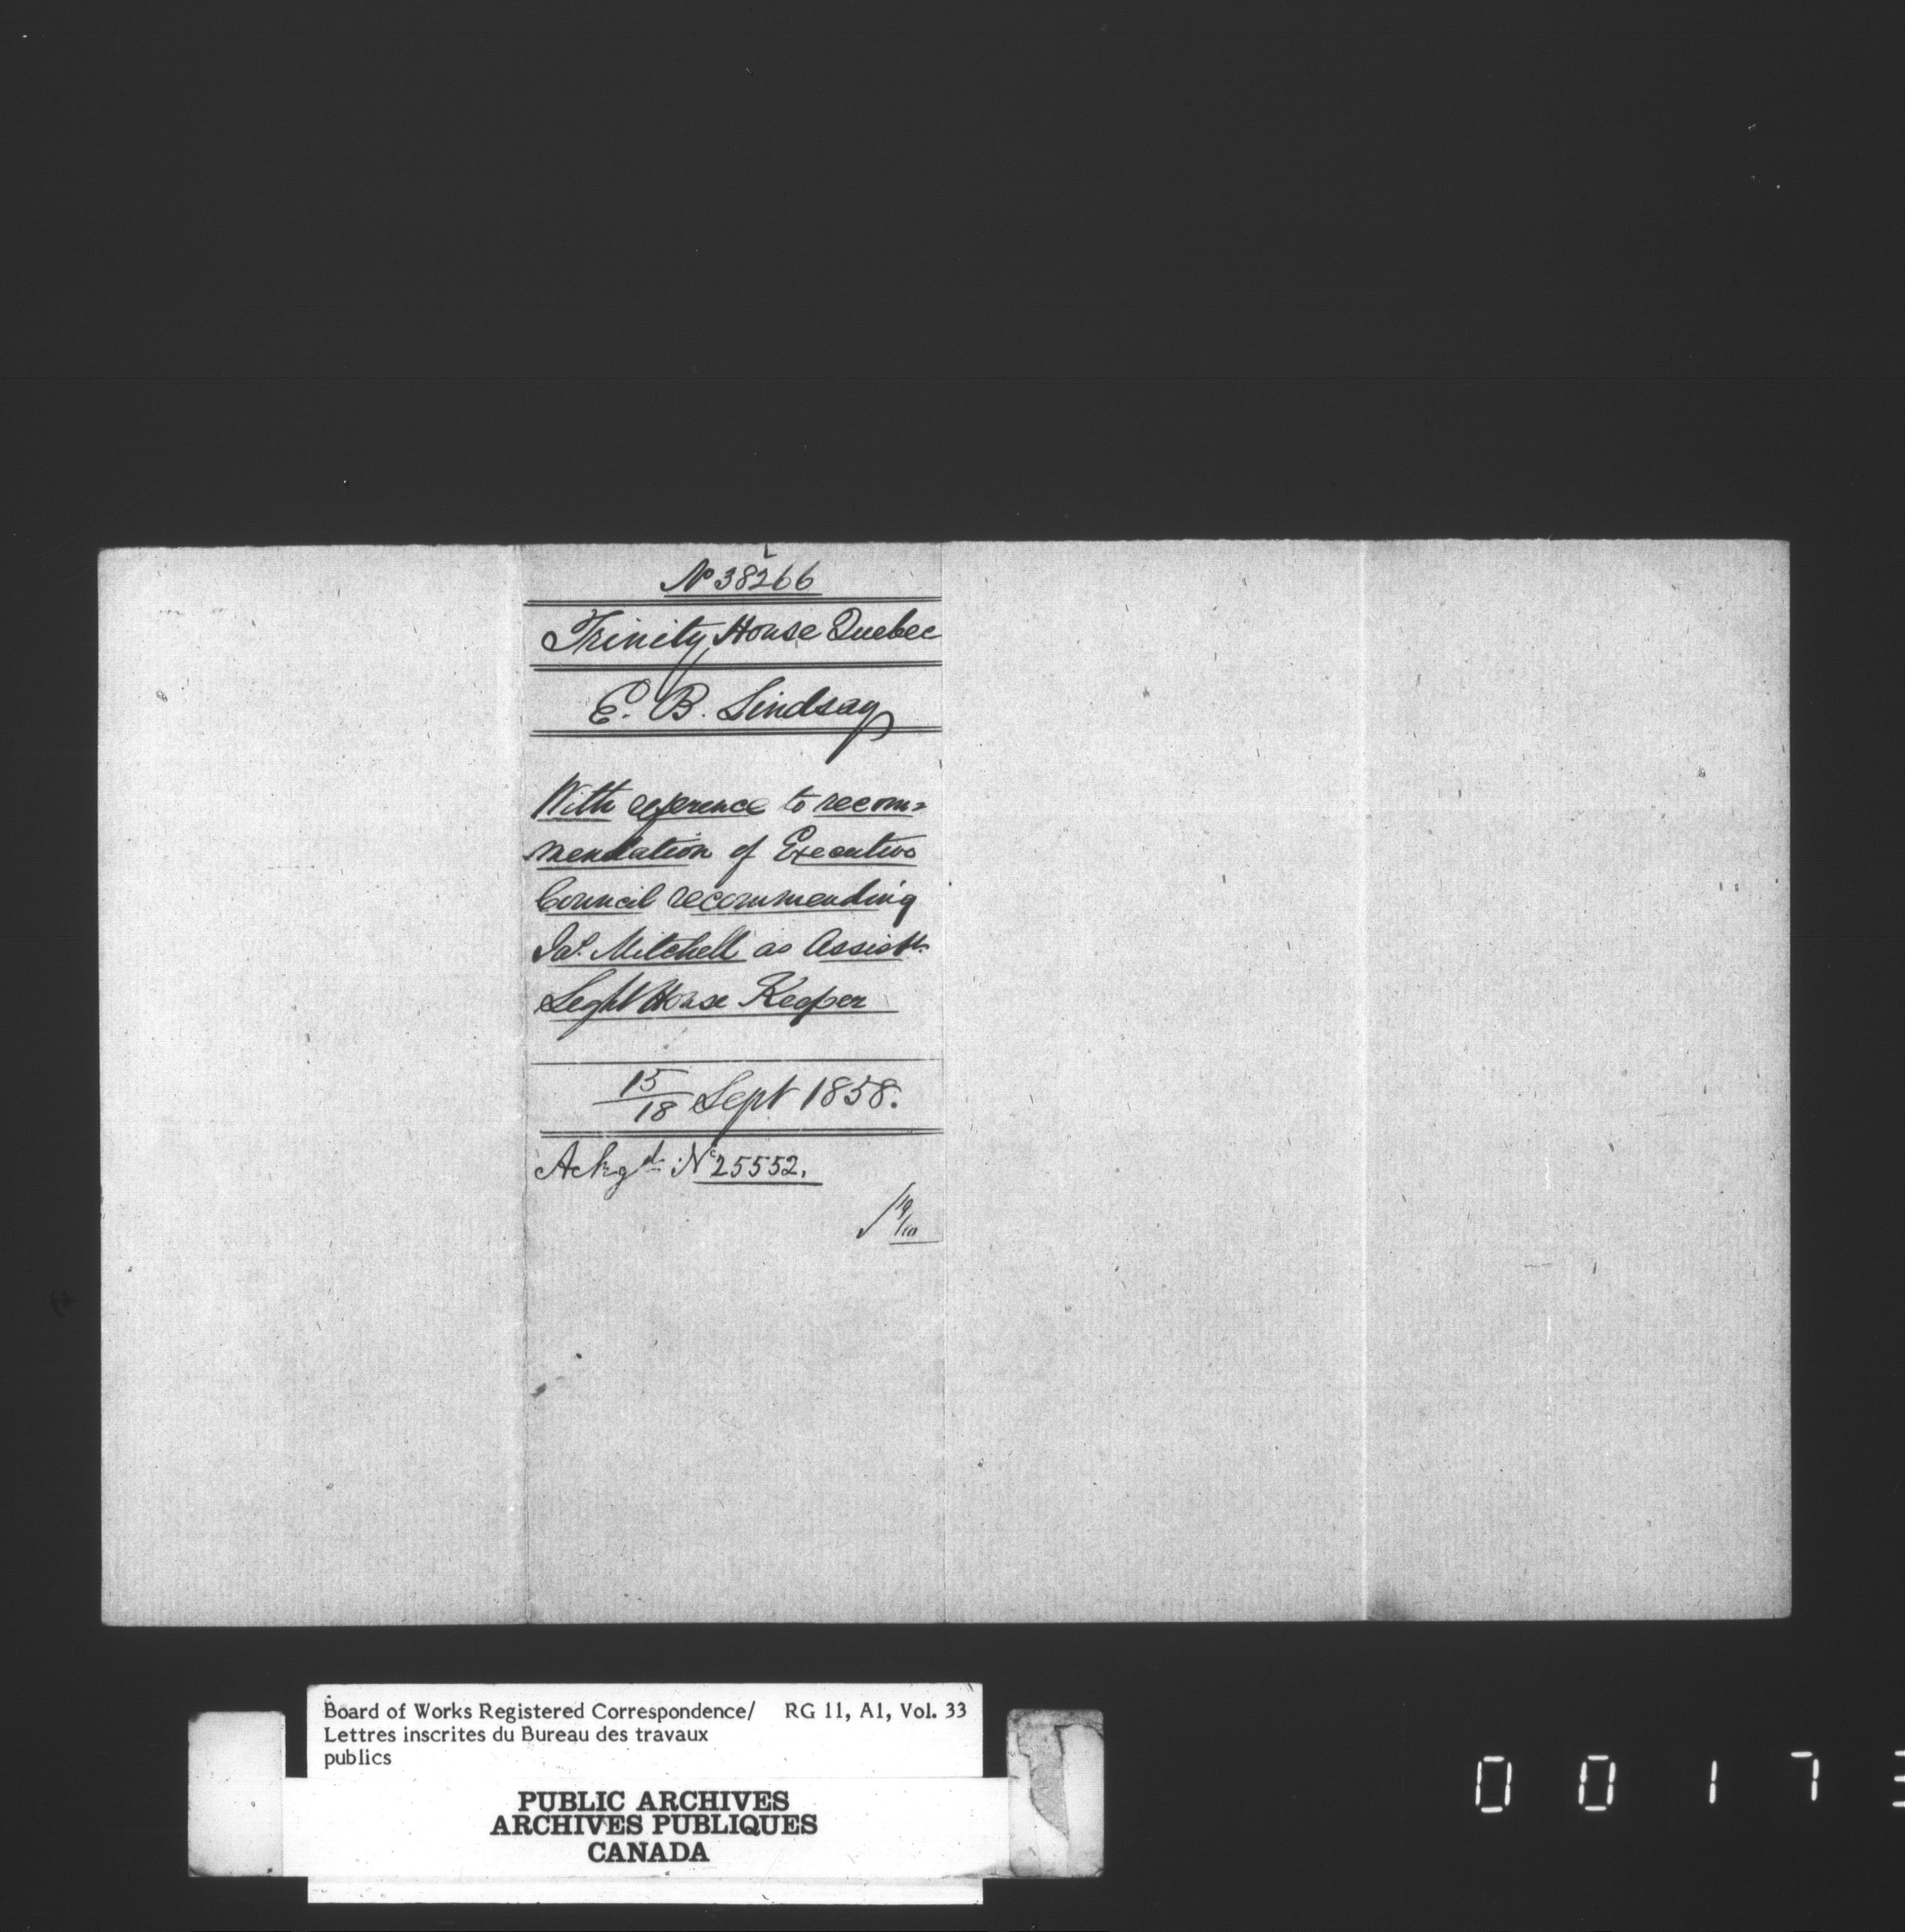 No 38266
Trinity House Quebec
E. B. Lindsay
With reference to recom=
mendation of Executive
Council recommending
Jas. Mitchell as Assistt.
Light House Keeper
15/18 Sept 1858.
Ackgd. No 25552.
Board of Works Registered Correspondence/ RG 11, A1, Vol. 33
Lettres inscrites du Bureau des travaux
publics
PUBLIC ARCHIVES
ARCHIVES PUBLIQUES
CANADA
0 0 1 7 3